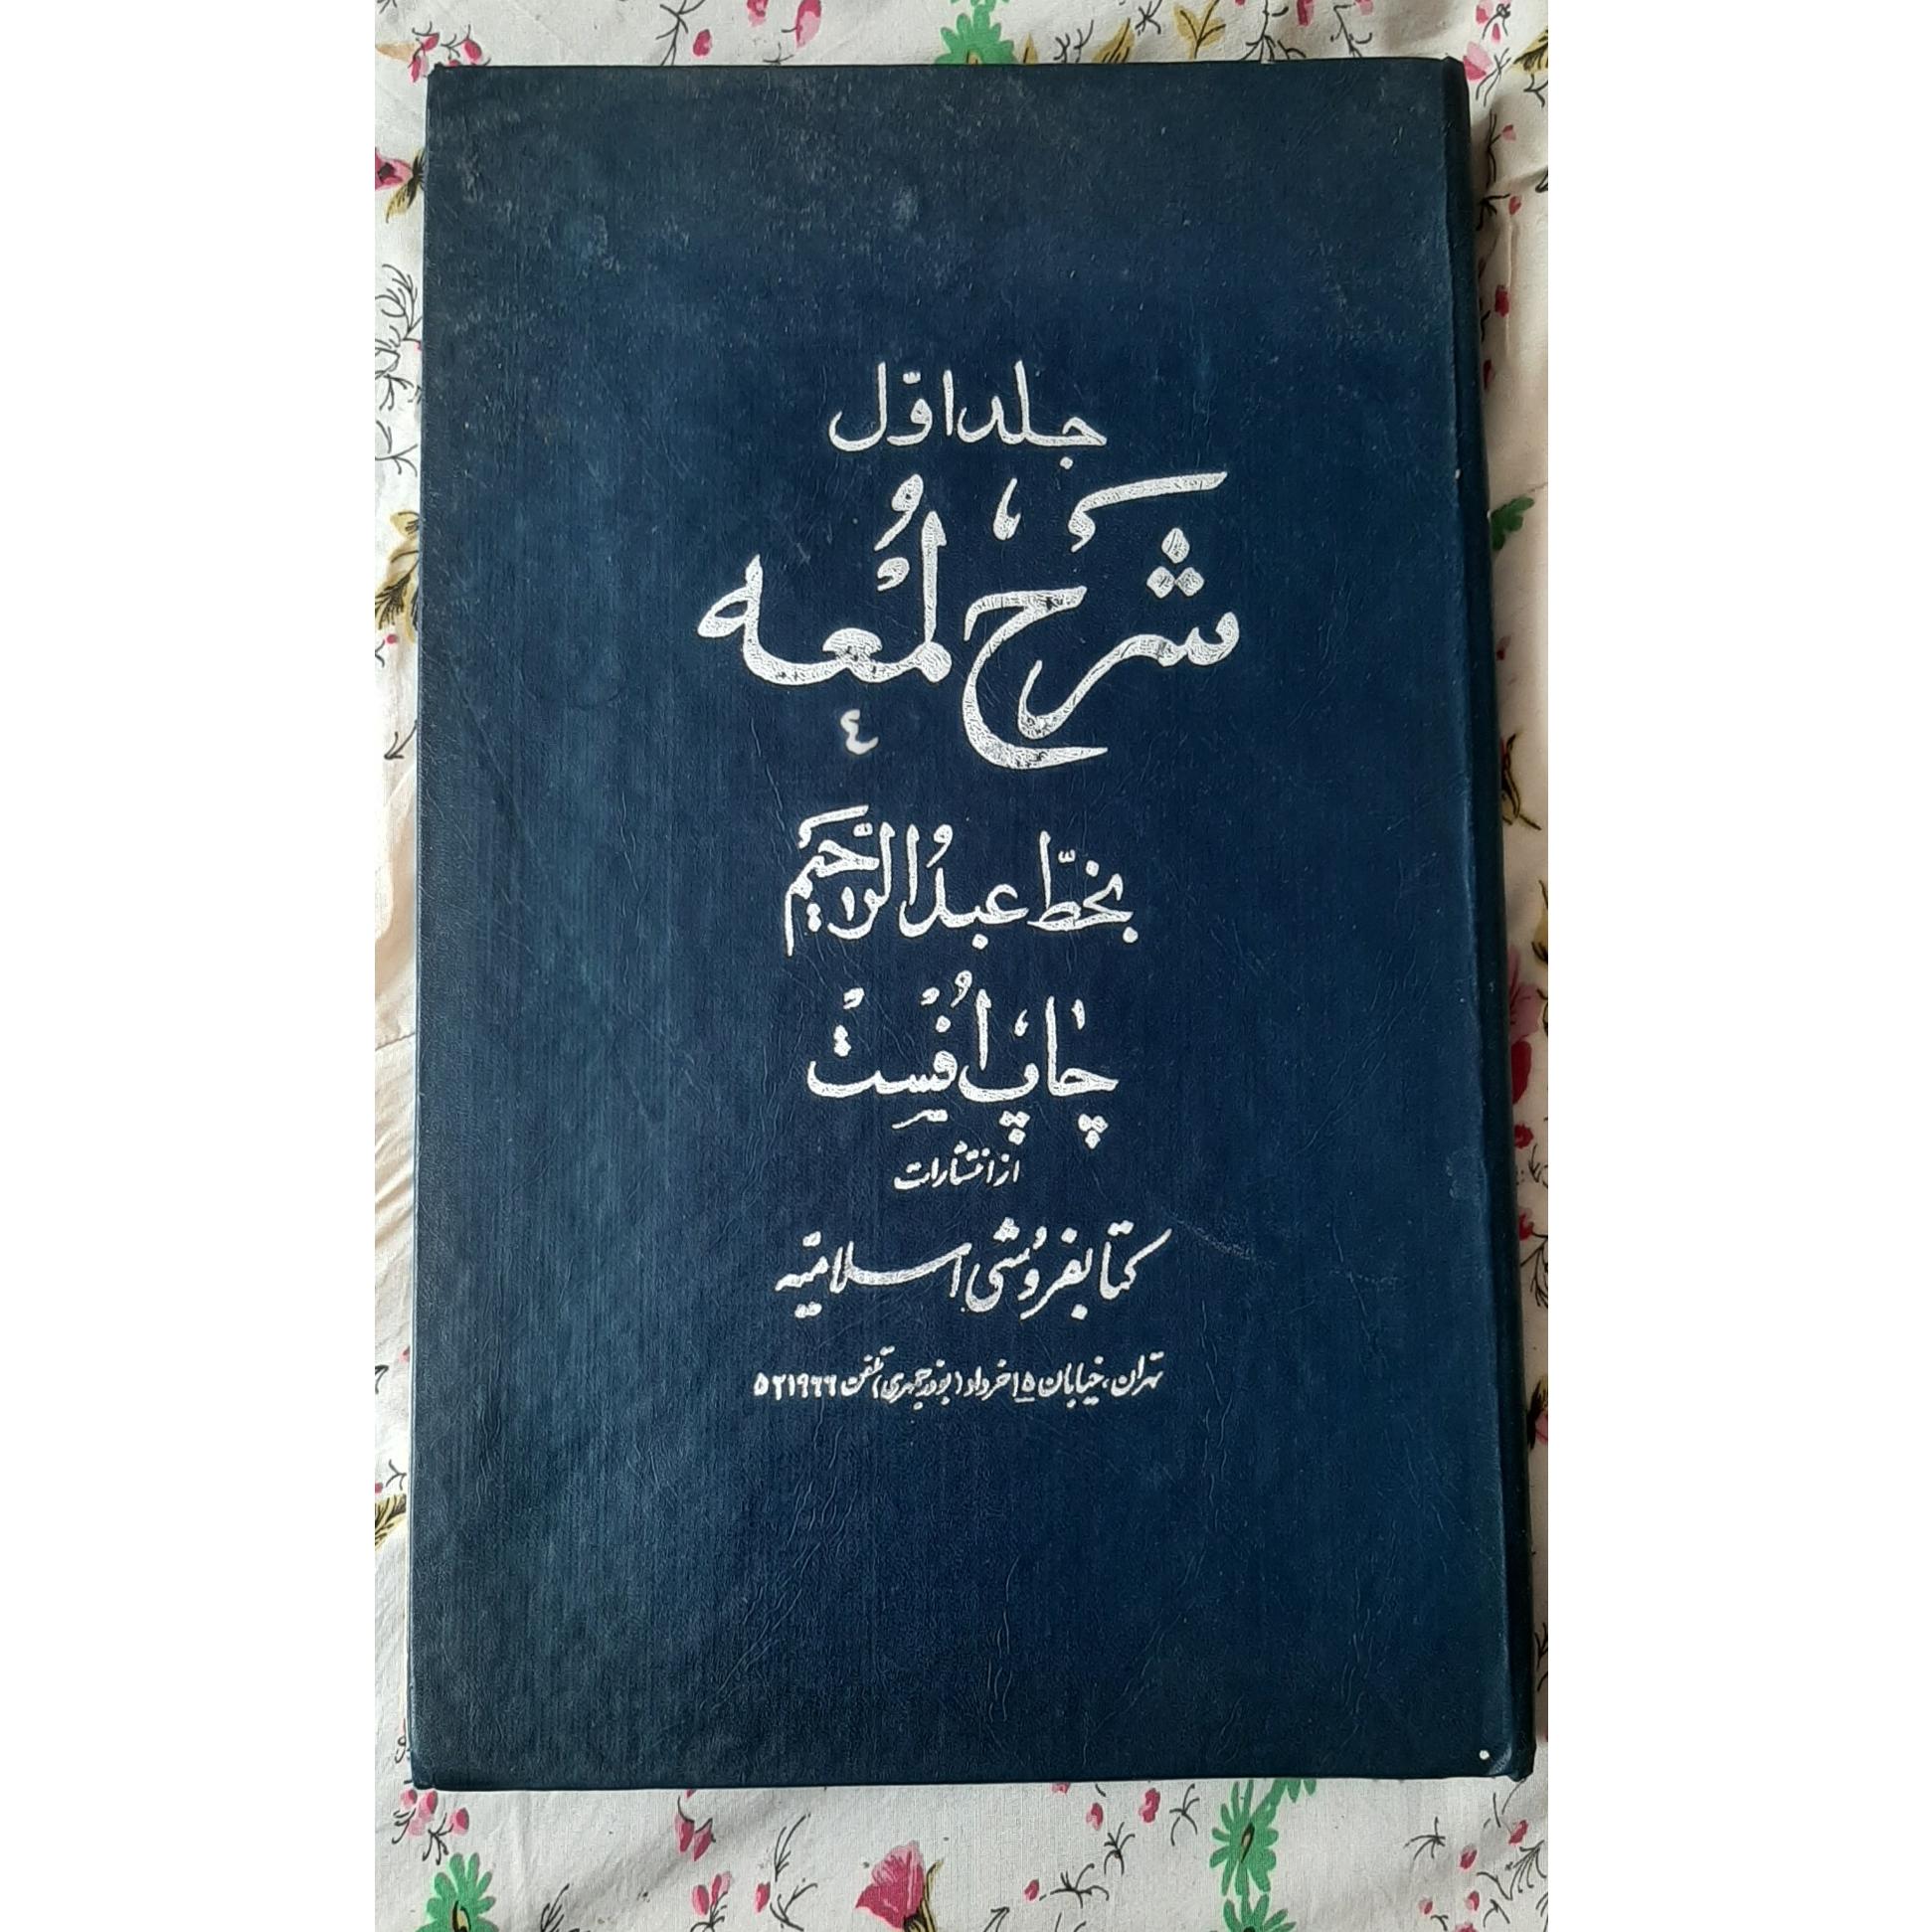 جلد اوّل
شَرح لُمْعه
بخطّ عبدُالرّحیم
چاپ اُفسِتْ
از انتشارات
کتابفروُشی اسلامیّه
تهران، خیابان ۱۵ خرداد (بوذرجمهری) تلفن ۵۲۱۹۶۶